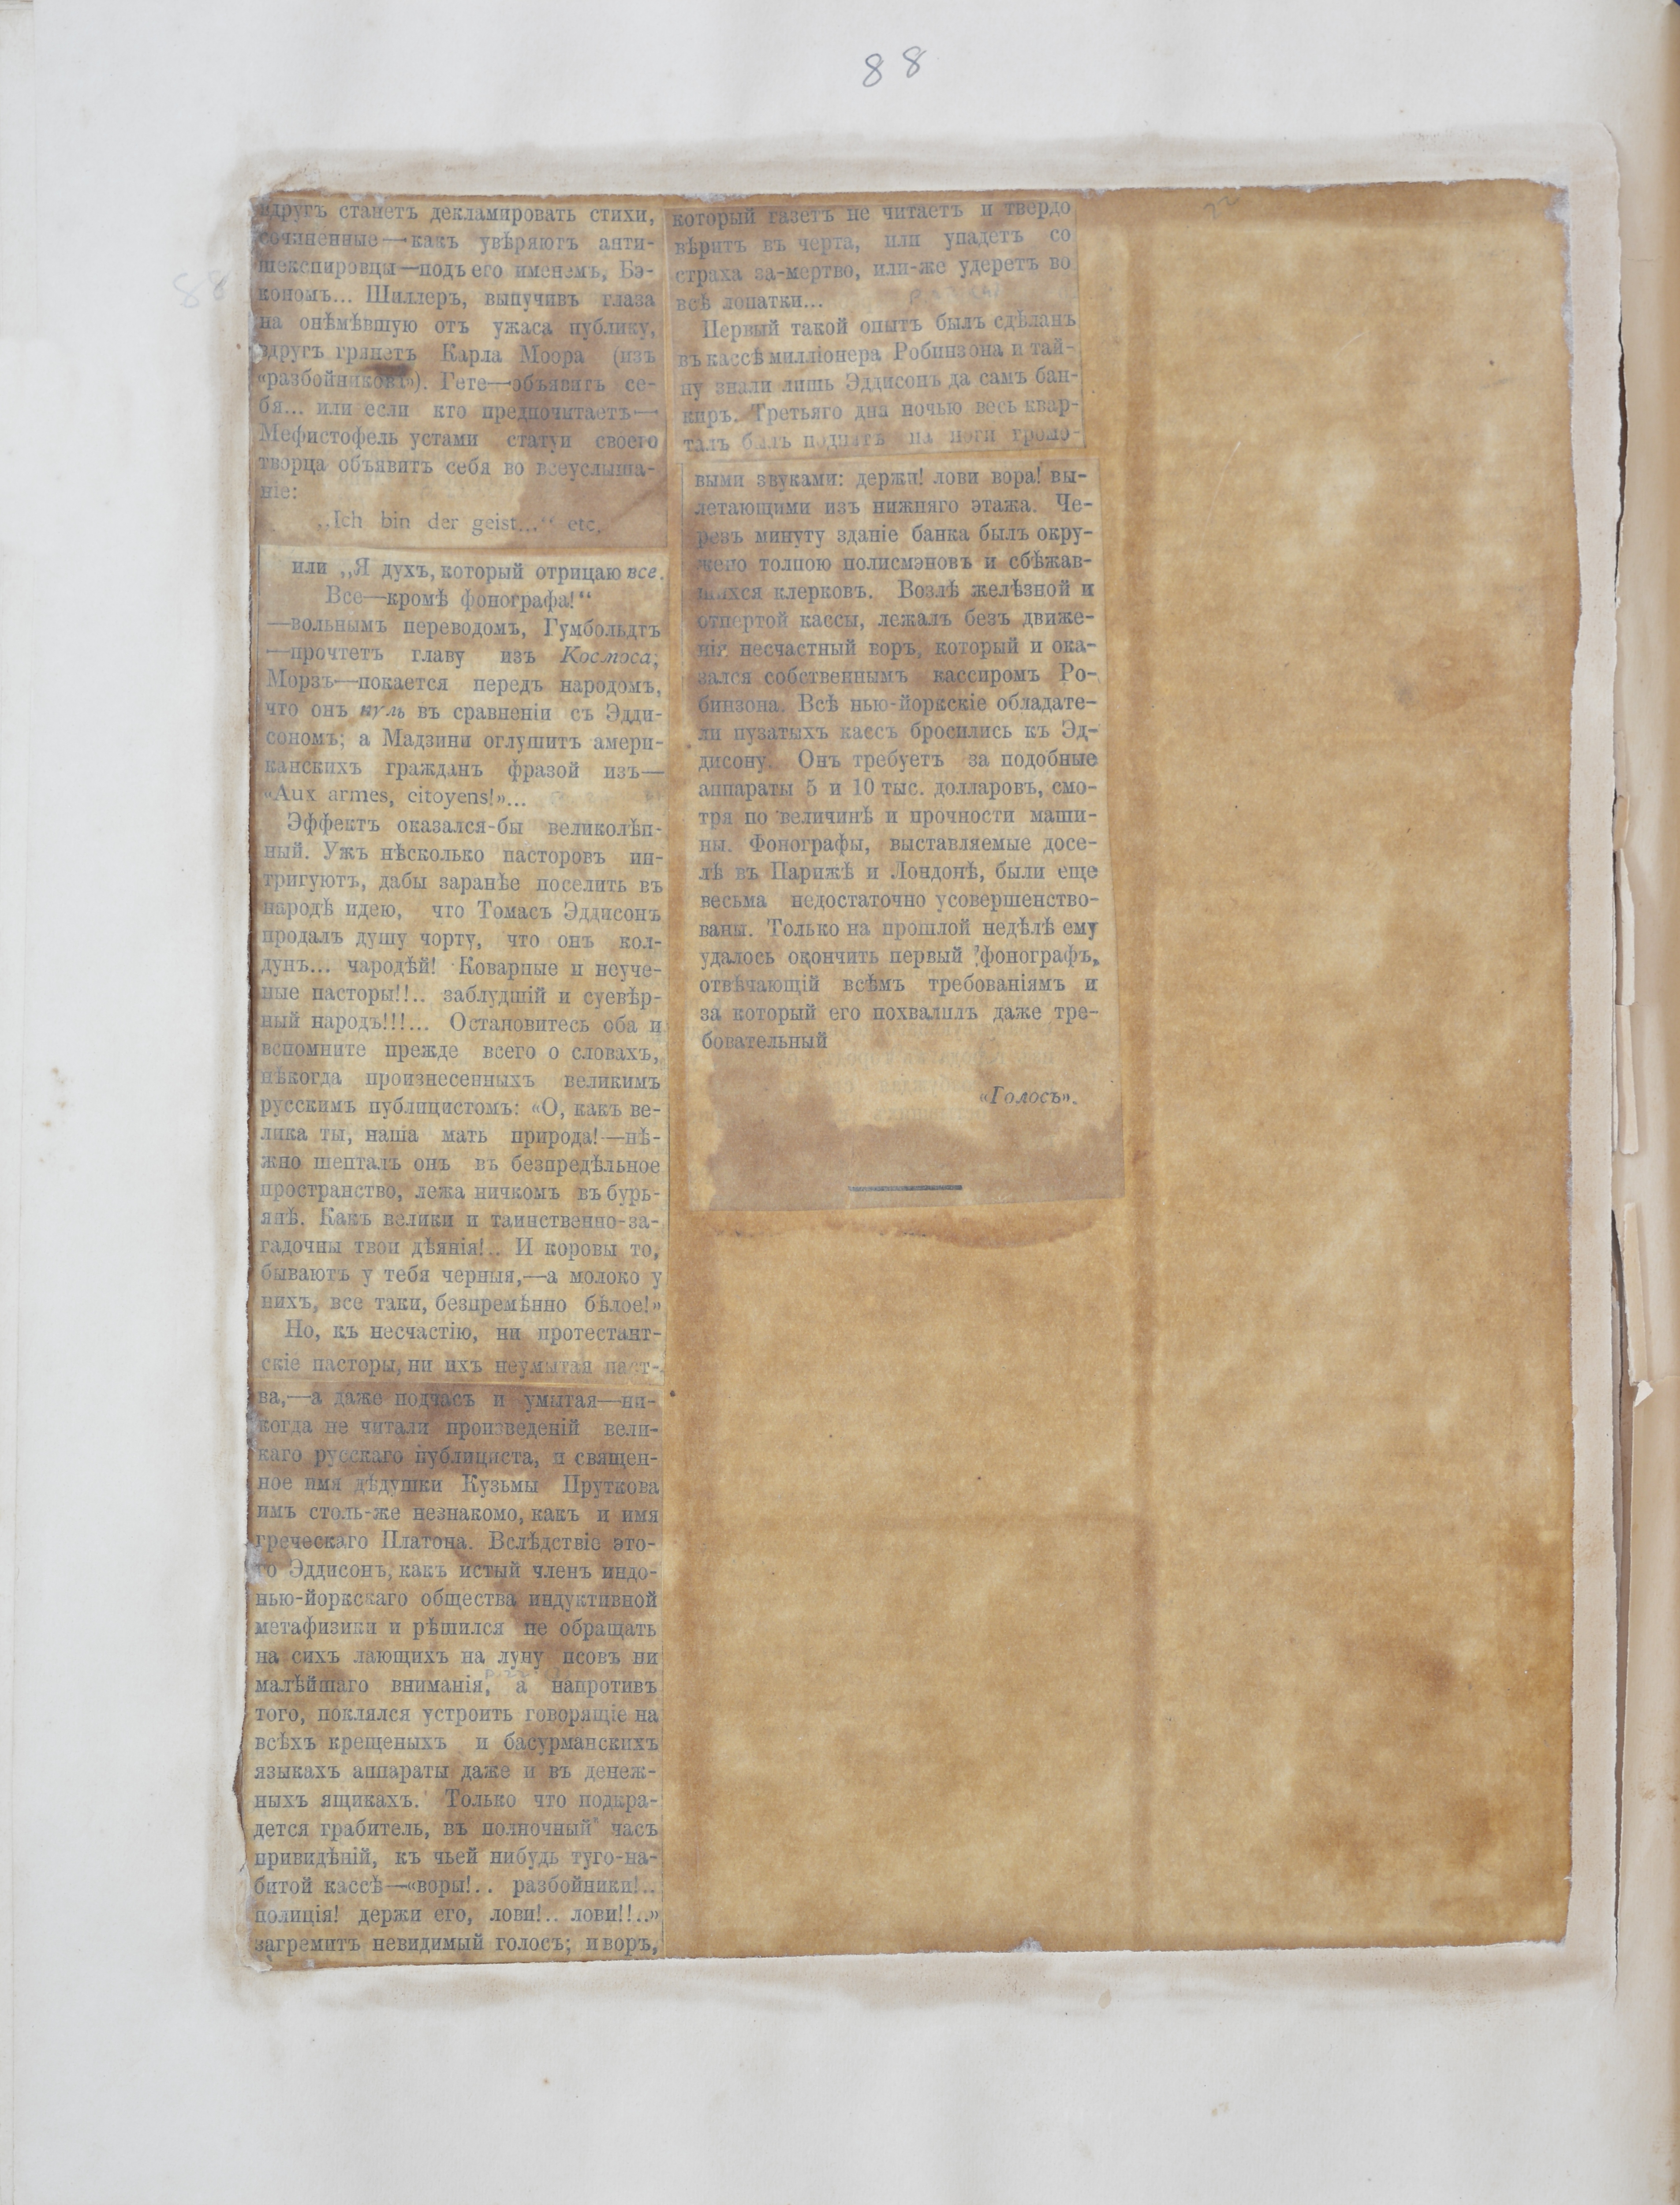 88
вдругъ станетъ декламировать стихи,
сочиненные—какъ увѣряютъ анти-
шекспировцы—подъ его именемъ, Бэ-
кономъ... Шиллеръ, выпучивъ глаза
на онѣмѣвшую отъ ужаса публику,
вдругъ грянетъ Карла Моора (изъ
«разбойниковъ»). Гете—объявитъ се-
бя... или если кто предпочитаетъ—
Мефистофель устами статуи своего
творца объявитъ себя во всеуслыша-
ніе:
„Ich bin der geist...“ etc.
или „Я духъ, который отрицаю все.
Все—кромѣ фонографа!“
—вольнымъ переводомъ, Гумбольдтъ
—прочтетъ главу изъ Космоса;
Морзъ—покается передъ народомъ,
что онъ нуль въ сравненіи съ Эдди-
сономъ; а Мадзини оглушитъ амери-
канскихъ гражданъ фразой изъ—
«Aux armes, citoyens!»...
Эффектъ оказался-бы великолѣп-
ный. Ужъ нѣсколько пасторовъ ин-
тригуютъ, дабы заранѣе поселить въ
народѣ идею, что Томасъ Эддисонъ
продалъ душу чорту, что онъ кол-
дунъ... чародѣй! Коварные и неуче-
ные пасторы!!.. заблудшій и суевѣр-
ный народъ!!!... Остановитесь оба и
вспомните прежде всего о словахъ,
нѣкогда произнесенныхъ великимъ
русскимъ публицистомъ: «О, какъ ве-
лика ты, наша мать природа!—нѣ-
жно шепталъ онъ въ безпредѣльное
пространство, лежа ничкомъ въ бурь-
янѣ. Какъ велики и таинственно-за-
гадочны твои дѣянія!.. И коровы то,
бываютъ у тебя черныя,—а молоко у
нихъ, все таки, безпремѣнно бѣлое!»
Но, къ несчастію, ни протестант-
скіе пасторы, ни ихъ неумытая паст-
ва,—а даже подчасъ и умытая—ни-
когда не читали произведеній вели-
каго русскаго публициста, и священ-
ное имя дѣдушки Кузьмы Пруткова
имъ столь-же незнакомо, какъ и имя
греческаго Платона. Вслѣдствіе это-
го Эддисонъ, какъ истый членъ индо-
нью-йоркскаго общества индуктивной
метафизики и рѣшился не обращать
на сихъ лающихъ на луну псовъ ни
малѣйшаго вниманія, а напротивъ
того, поклялся устроить говорящіе на
всѣхъ крещеныхъ и басурманскихъ
языкахъ аппараты даже и въ денеж-
ныхъ ящикахъ. Только что подкра-
дется грабитель, въ полночный часъ
привидѣній, къ чьей нибудь туго-на-
битой кассѣ—«воры!.. разбойники!..
полиція! держи его, лови!.. лови!!..»
загремитъ невидимый голосъ; и воръ,
который газетъ не читаетъ и твердо
вѣритъ въ черта, или упадетъ со
страха за-мертво, или-же удеретъ во
всѣ лопатки...
Первый такой опытъ былъ сдѣланъ
въ кассѣ милліонера Робинзона и тай-
ну знали лишь Эддисонъ да самъ бан-
киръ. Третьяго дня ночью весь квар-
талъ былъ поднятъ на ноги громо-
выми звуками: держи! лови вора! вы-
летающими изъ нижняго этажа. Че-
резъ минуту зданіе банка былъ окру-
жено толпою полисмэновъ и сбѣжав-
шихся клерковъ. Возлѣ желѣзной и
отпертой кассы, лежалъ безъ движе-
нія несчастный воръ, который и ока-
зался собственнымъ кассиромъ Ро-
бинзона. Всѣ нью-йоркскіе обладате-
ли пузатыхъ кассъ бросились къ Эд-
дисону. Онъ требуетъ за подобные
аппараты 5 и 10 тыс. долларовъ, смо-
тря по величинѣ и прочности маши-
ны. Фонографы, выставляемые досе-
лѣ въ Парижѣ и Лондонѣ, были еще
весьма недостаточно усовершенство-
ваны. Только на прошлой недѣлѣ ему
удалось окончить первый фонографъ,
отвѣчающій всѣмъ требованіямъ и
за который его похвалилъ даже тре-
бовательный
«Голосъ».